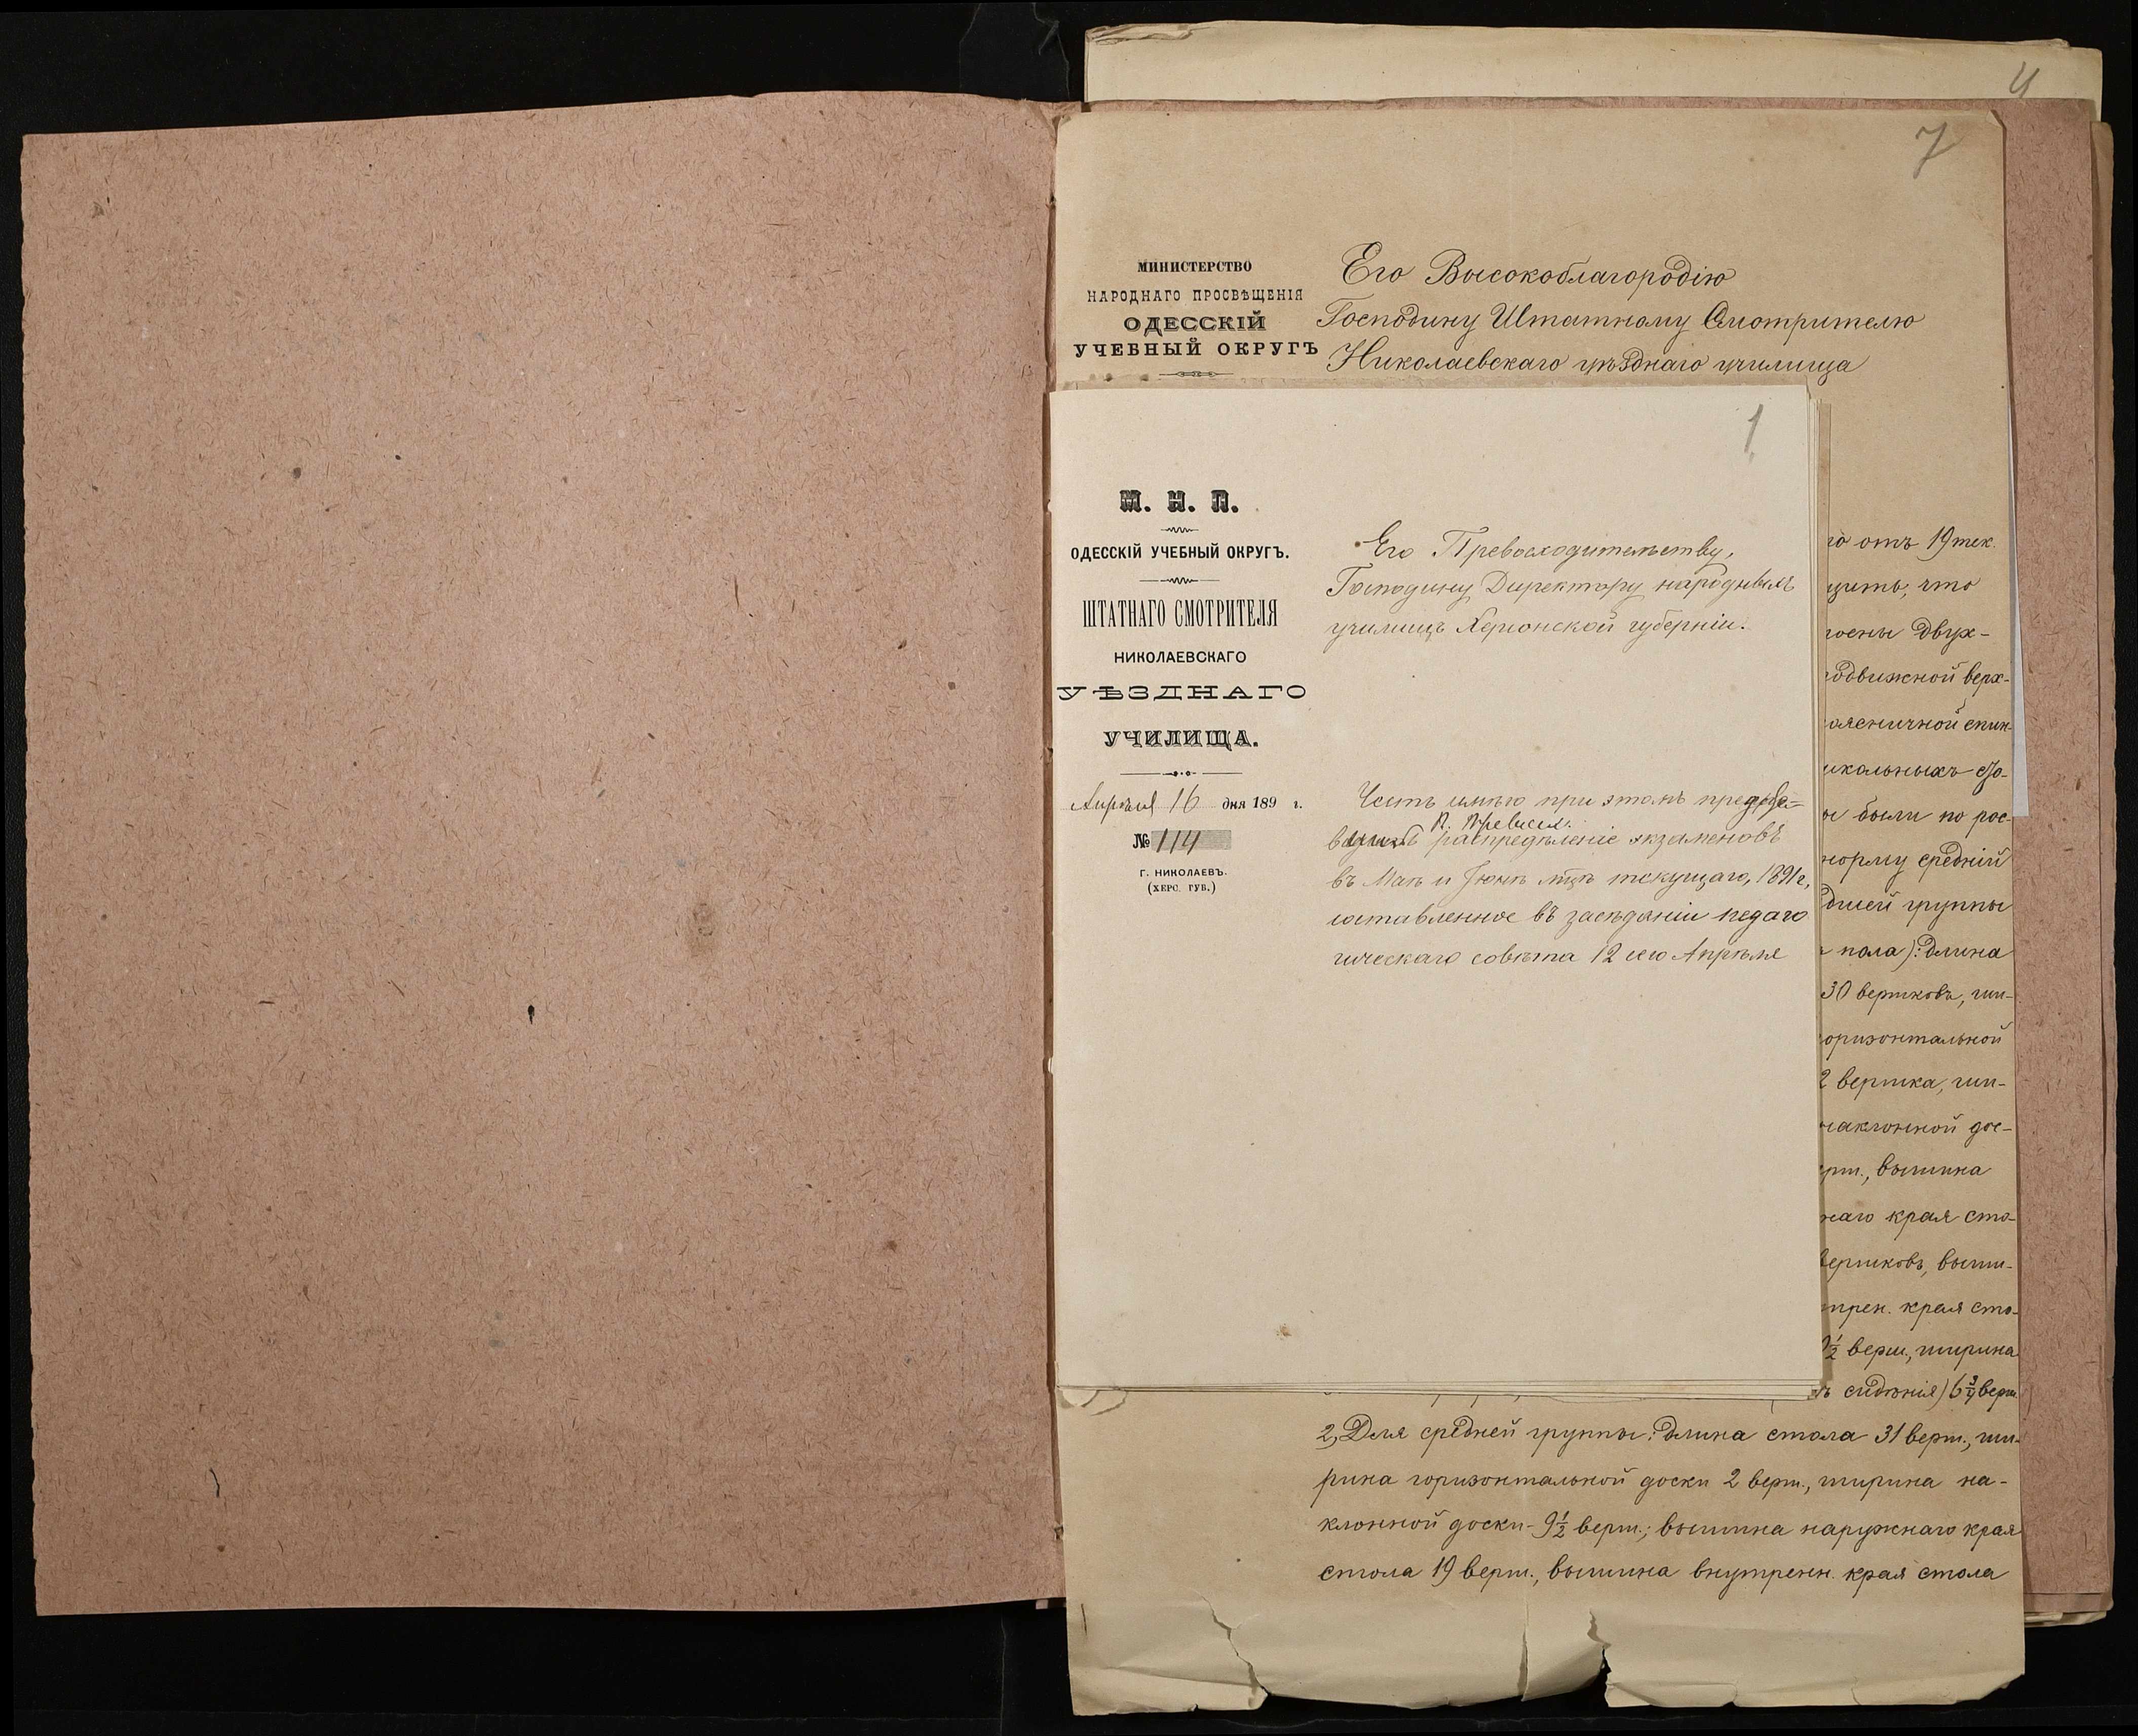 4
7
МИНИСТЕРСТВО
НАРОДНАГО ПРОСВѢЩЕНІЯ
ОДЕССКІЙ
УЧЕБНЫЙ ОКРУГЪ
Его Высокоблагородію
Господину Штатному Смотрителю
Николаевскаго уѣзднаго училища
1
М. Н. П.
ОДЕССКІЙ УЧЕБНЫЙ ОКРУГЪ.
ШТАТНАГО СМОТРИТЕЛЯ
НИКОЛАЕВСКАГО
УѢЗДНАГО
УЧИЛИЩА.
Апрѣля 16 дня 189 г.
№ 114
Г. НИКОЛАЕВЪ.
(ХЕРС. ГУБ.)
Его Превосходительству,
Господину Директору народныхъ
училищъ Херсонской губерніи.
Честь имѣю при этомъ
В. Превосх.
распредѣленіе экзаменовъ
въ Маѣ и Іюнѣ мцѣ текущаго, 1891 г,
составленное въ засѣданіи педаго
гическаго совѣта 12 сего Апрѣля
го отъ 19 тек.
щить, что
роены двух-
подвижной верх-
оясничной спин-
школьныхъ сто-
ы были по рос-
норму средній
дшей группы
пола): длина
30 вершковъ, ши-
горизонтальной
2 вершка, ши-
наклонной дос-
рш., вышина
жнаго края сто-
вершковъ, выши-
трен. края сто-
½ верш., ширина
ъ сидѣнія) 6 ¾ верш.
2, Для средней группы: длина стола 31 верш., ши-
рина горизонтальной доски 2 верш., ширина на-
клонной доски - 9 ½ верш.; вышина наружнаго края
стола 19 верш., вышина внутренн. края стола